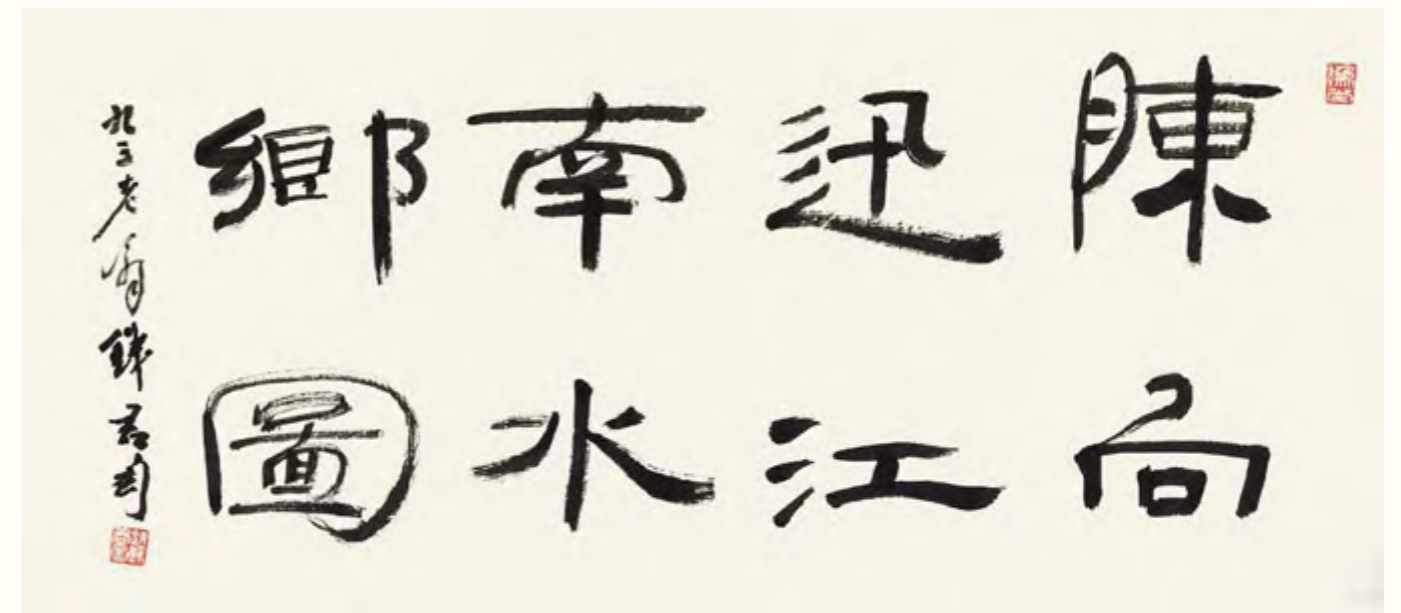 陳向
迅江
南水
鄉圖
老翁錢君匋